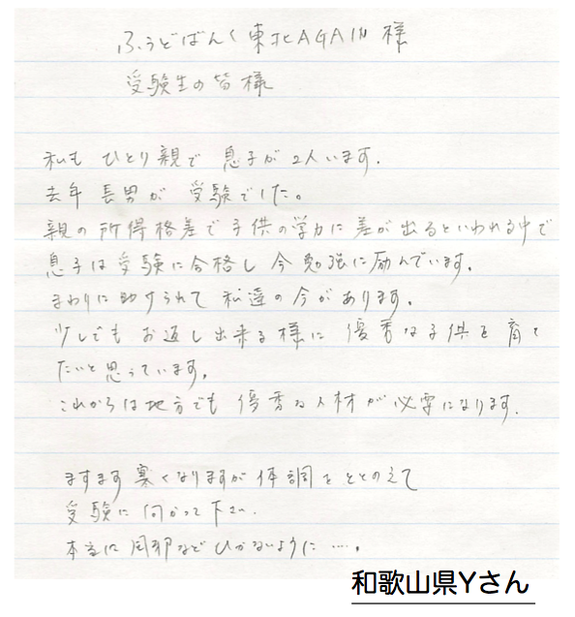 ふうどばんく東北AGAIN 様
受験生の皆様
私も ひとり親で 息子が 2人います.
去年 長男が 受験でした。
親の所得格差で子供の学力に差が出るといわれる中で
息子は受験に合格し今勉強に励んでいます.
まわりに助けられて 私達の今があります.
少しでも お返し出来る様に 優秀な子供を 育て
たいと思っています.
これからは地方でも 優秀な人材が必要になります.
ますます 寒くなりますが 体調をととのえて
受験に向かって下さい.
本当に風邪などひかないように….
和歌山県Yさん